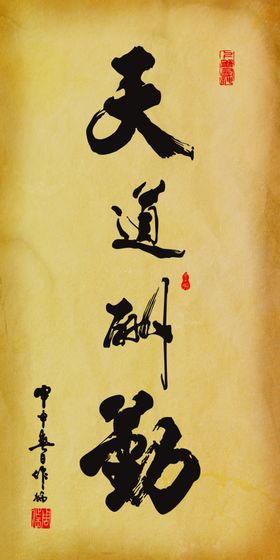 天道酬勤
甲申春日作